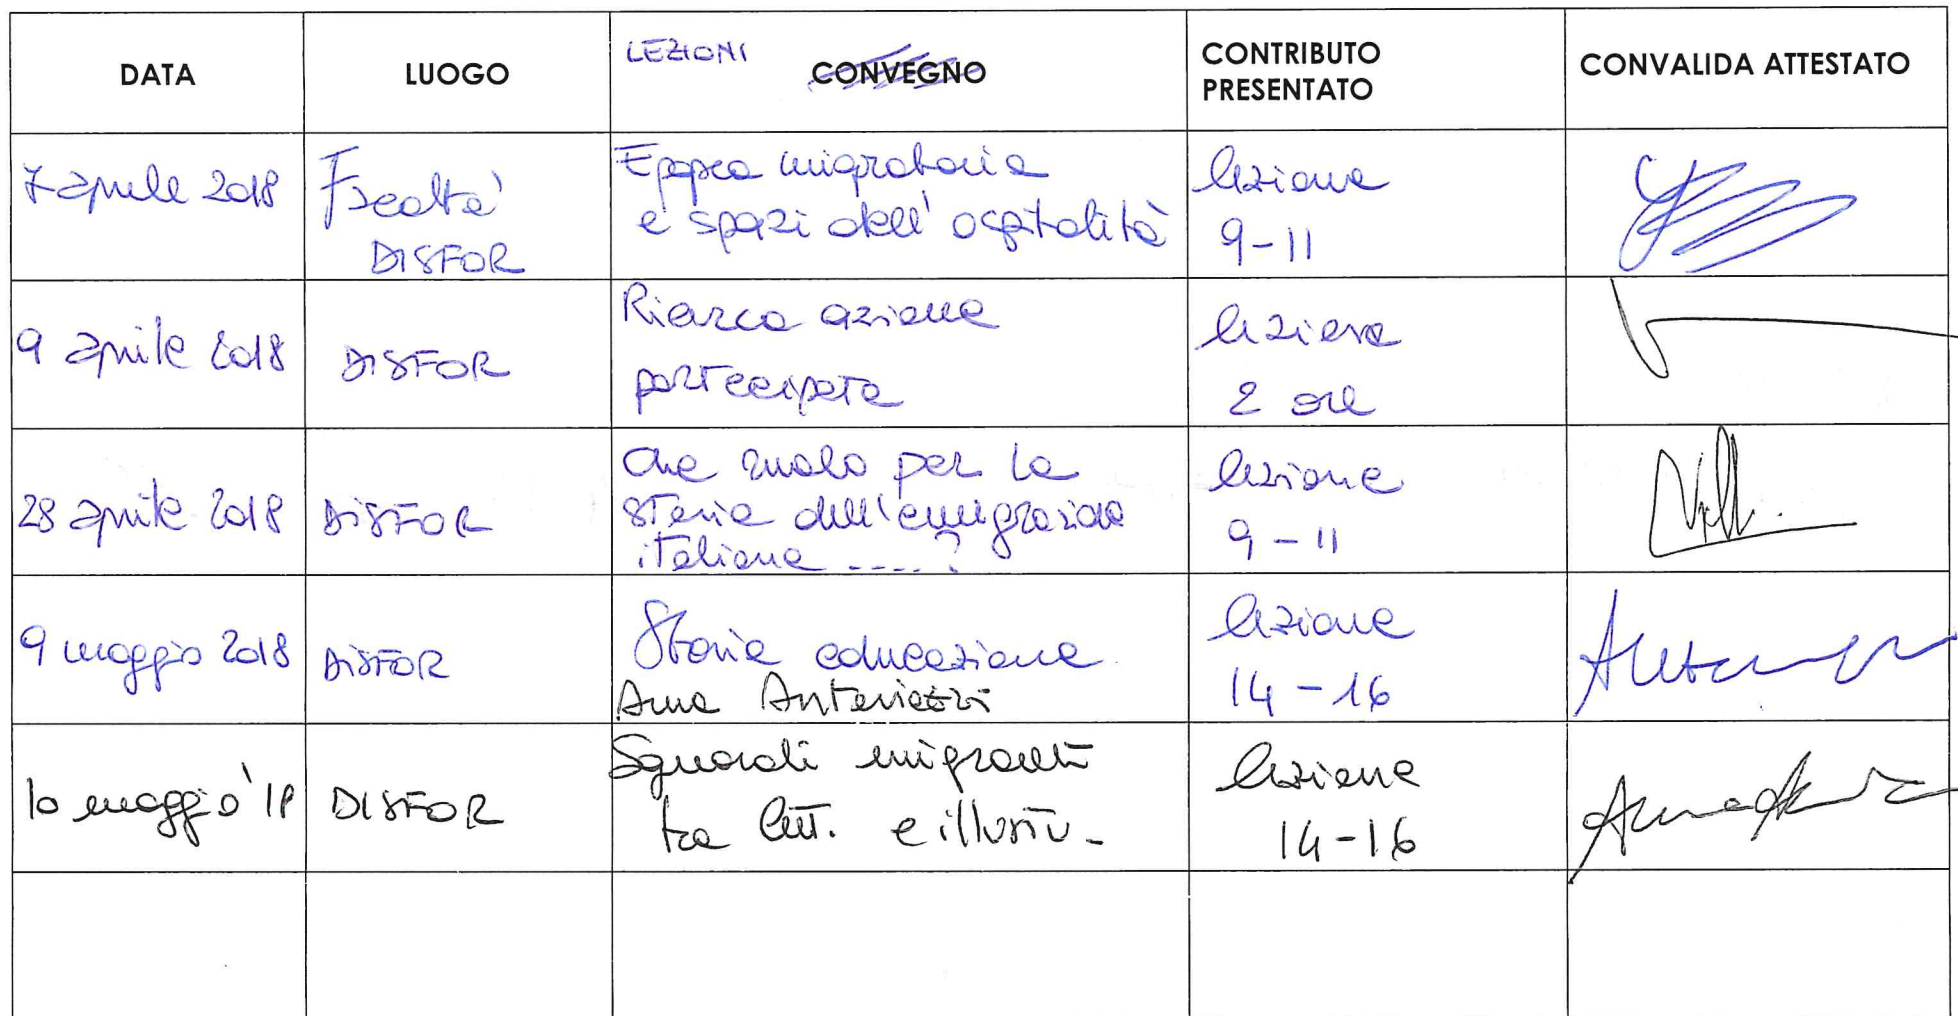 DATA
LUOGO
LEZIONI
CONVEGNO
CONTRIBUTO
PRESENTATO
CONVALIDA ATTESTATO
7 aprile 2018
Facoltà
DISFOR
Epopea migratoria
e spazi dell'ospitalità
lezione
9-11
9 aprile 2018
DISFOR
Ricerca azione
partecipata
lezione
2 ore
28 aprile 2018
DISFOR
che ruolo per la
storia dell'emigrazione
italiana ....?
lezione
9-11
9 maggio 2018
DISFOR
Storia educazione
Anna
lezione
14-16
10 maggio '18
DISFOR
Sguardi migranti
tra lett. e illustr.
lezione
14-16